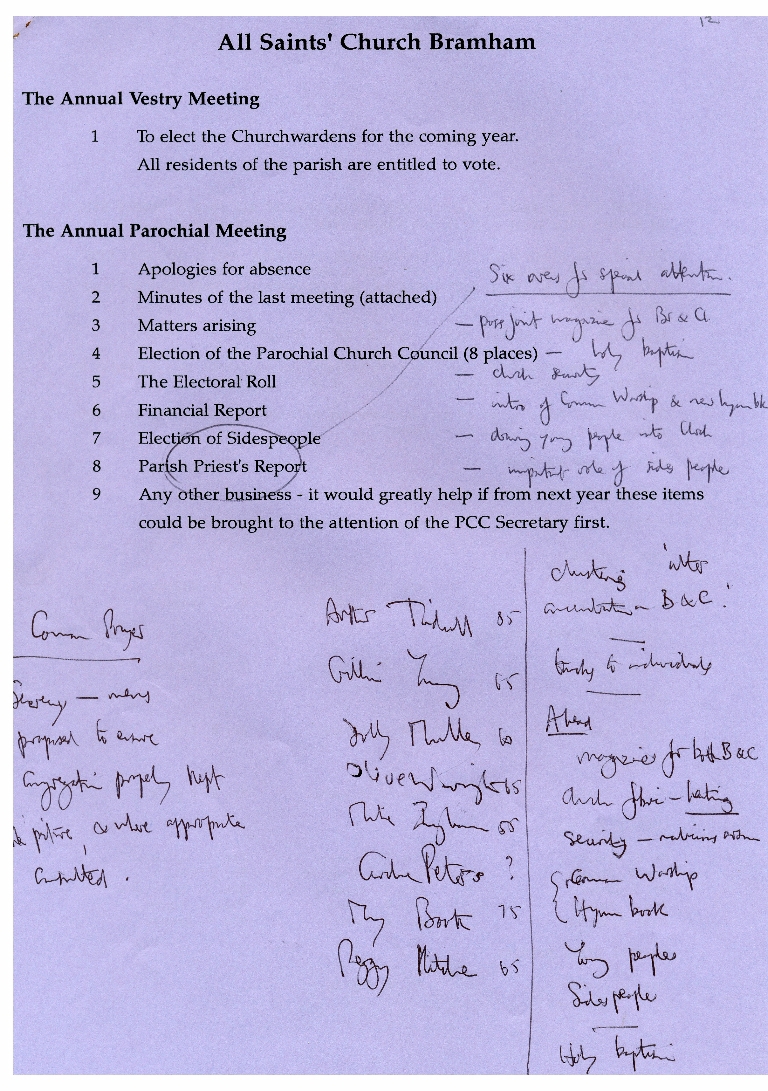 12
All Saints' Church Bramham
The Annual Vestry Meeting
1 To elect the Churchwardens for the coming year.
All residents of the parish are entitled to vote.
The Annual Parochial Meeting
1 Apologies for absence
Six areas for special attention.
2 Minutes of the last meeting (attached)
3 Matters arising
— poss joint magazine for Br & Cl
4 Election of the Parochial Church Council (8 places) — holy baptism
5 The Electoral Roll
— church security
6 Financial Report
— intro of Common Worship & new hymn bk
7 Election of Sidespeople
— drawing young people into Church
8 Parish Priest's Report
— important role of sides people
9 Any other business - it would greatly help if from next year these items
could be brought to the attention of the PCC Secretary first.
Common Prayer
Secrecy — means
proposed to ensure
Congregation properly kept
picture & where appropriate
consulted.
Arthur 85
Gillian Young 65
Dolly 60
Olive Wright 65
Mike Ingham 55
Peters ?
Booth 75
Peggy Mitchell 65
clustering 'inter
B & C.'
to individuals
Ahead
magazine for both B & C
church - heating
security —
Common Worship
Hymn book
Young people
Sidespeople
Holy baptism